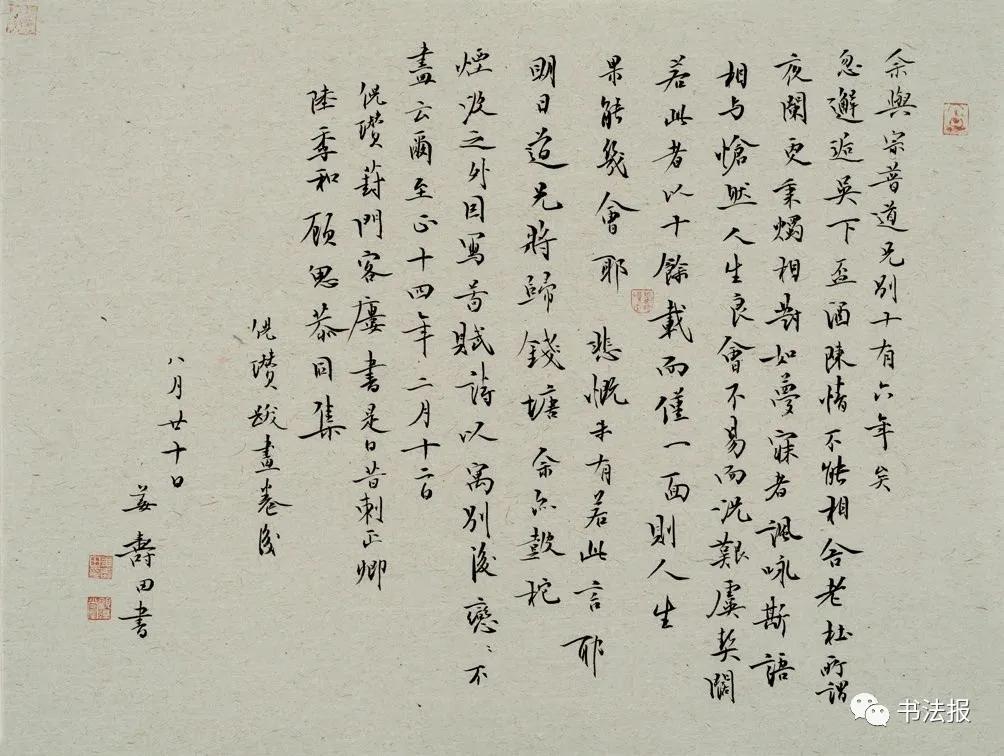 余與宗普道兄別十有六年矣
忽邂逅吳下盃酒陳情不能相舍老杜所謂
夜闌更秉燭相對如夢寐者諷咏斯語
相与愴然人生良會不易而况艱虞契闊
若此者以十餘載而僅一面則人生
果能幾會耶 悲慨未有若此言耶
明日道兄將歸錢塘余亦鼓枻
煙波之外因寫昔賦詩以寓別後戀〻不
盡云爾至正十四年二月十二日
倪瓚葑門客廔書是日昔刺正卿
陸季和顧思恭同集
倪瓚跋畫卷後
八月廿十日
壽田書
书法报